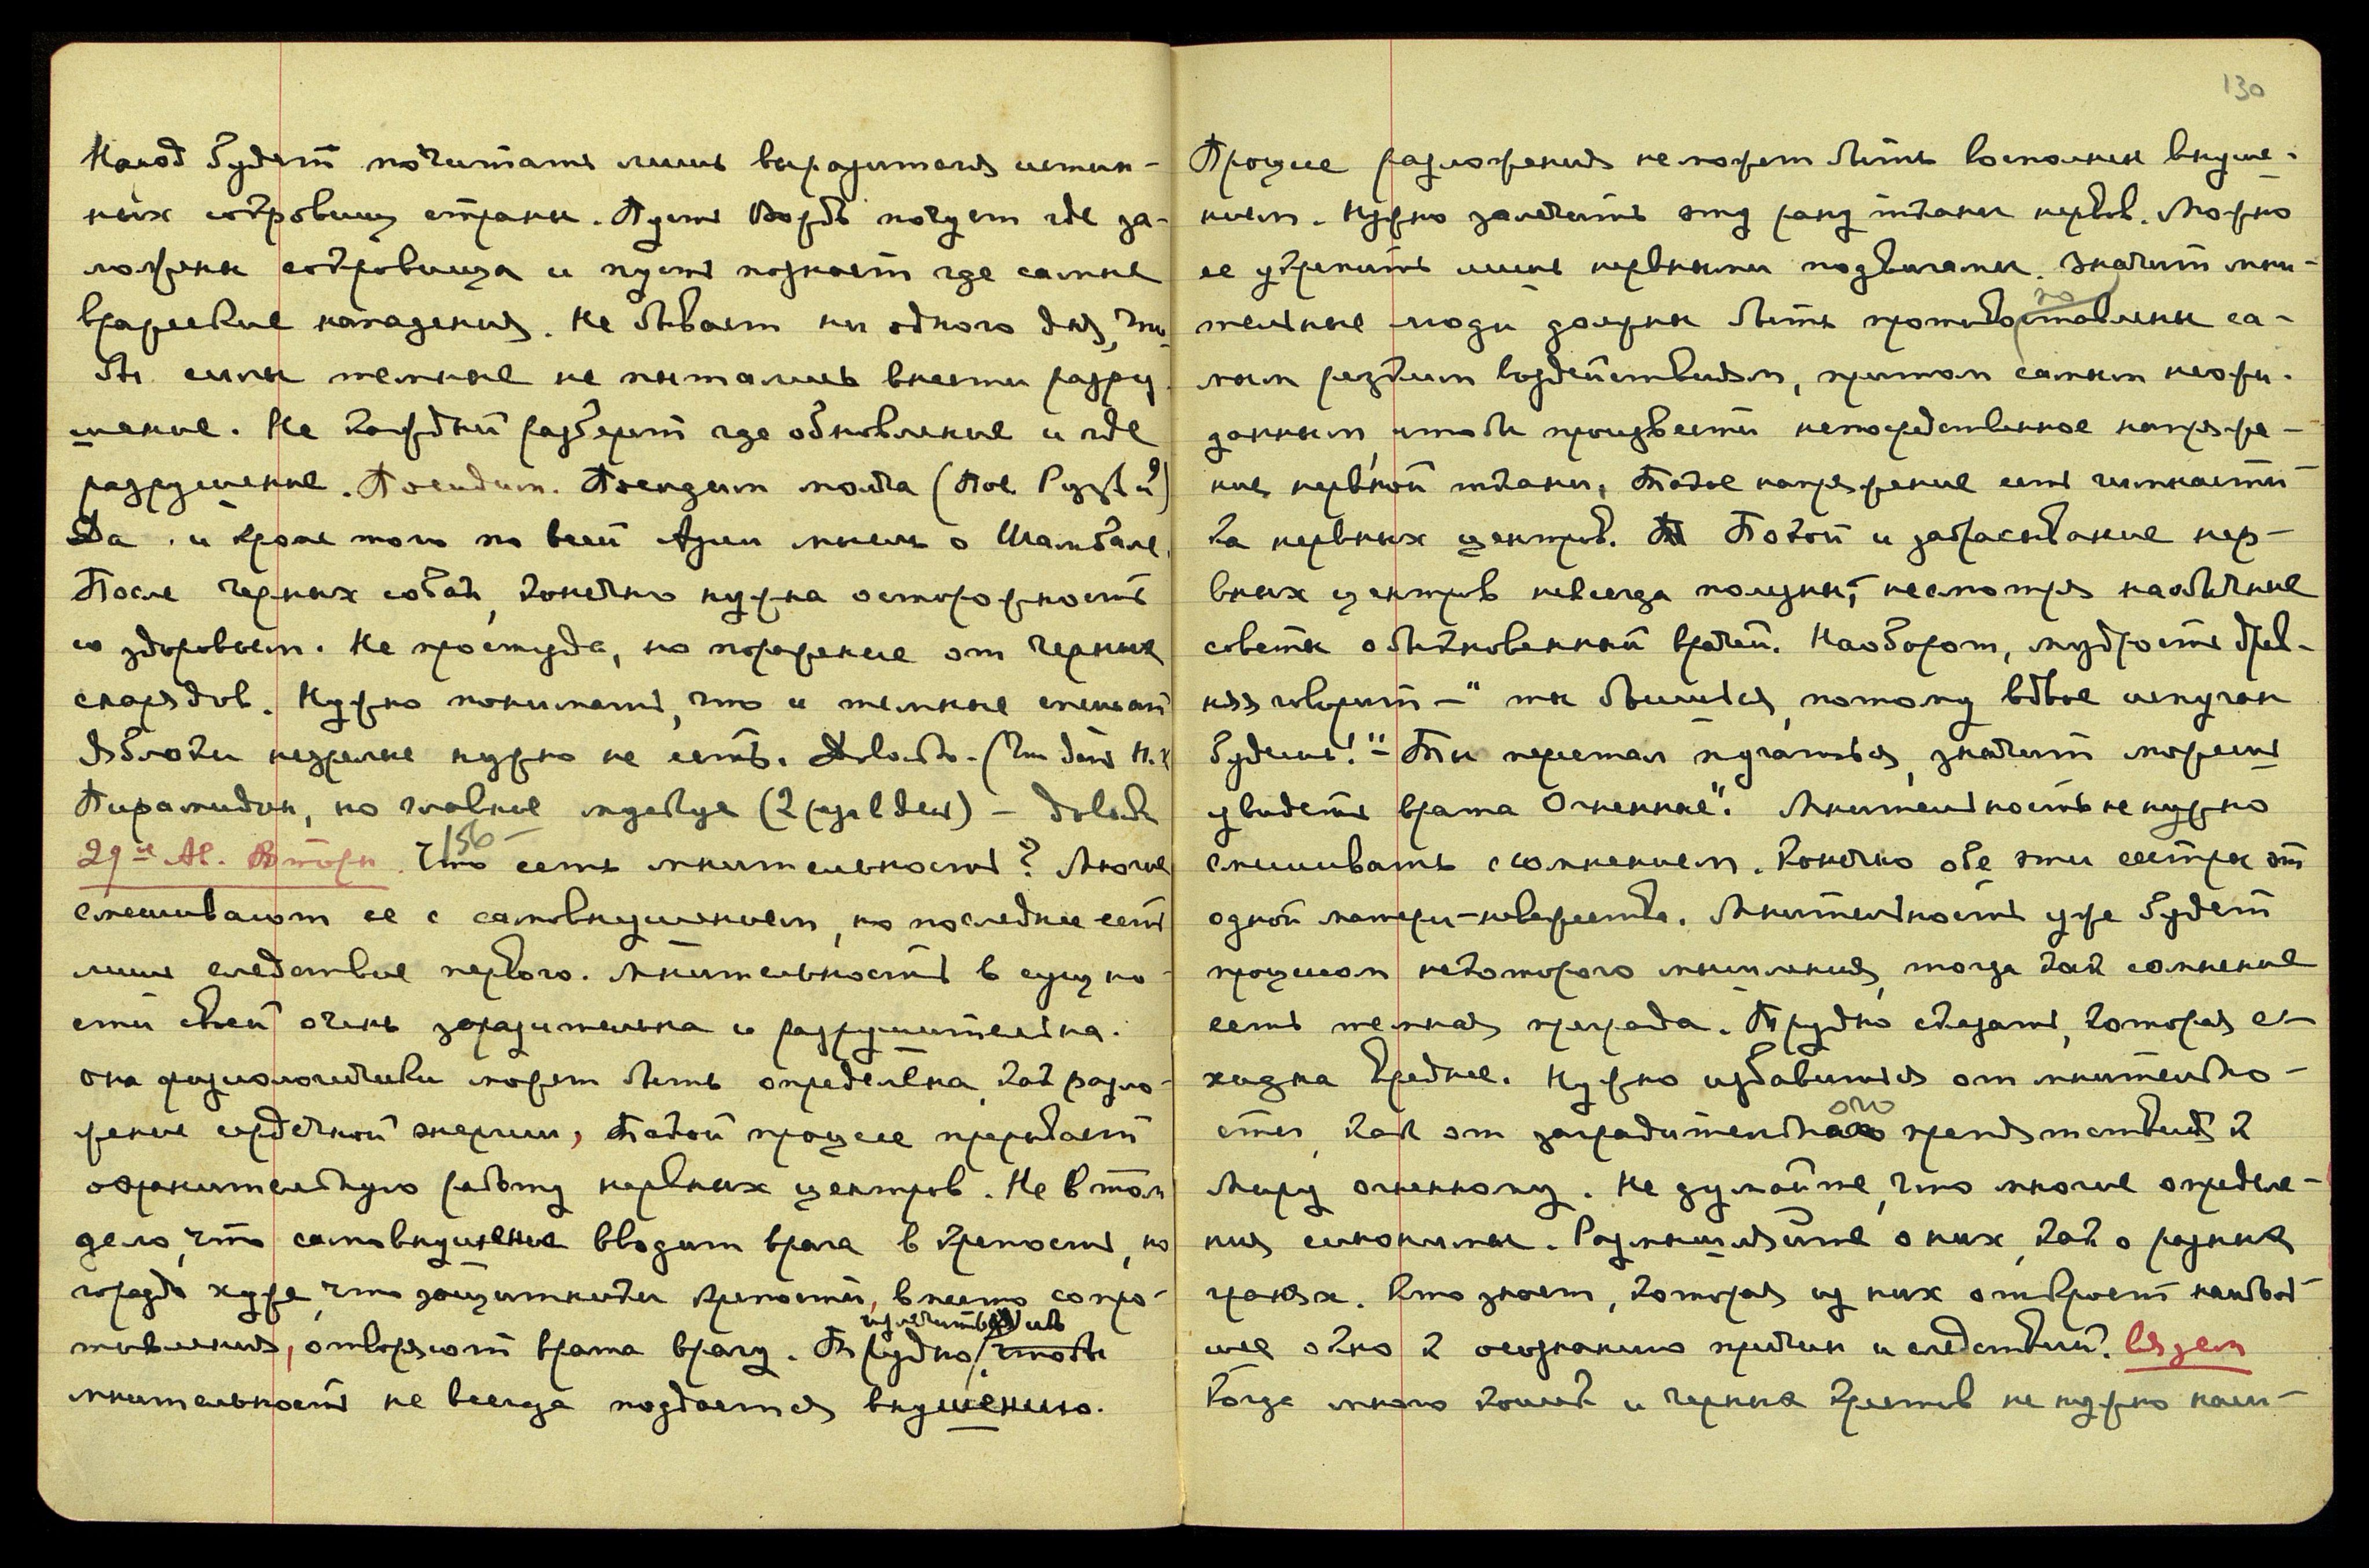 130
Народ будет почитать лишь выразителя истин-
ных сокровищ страны. Пусть Вордь почует где за-
ложены сокровища и пусть познает где самые
вражеские нападения. Не бывает ни одного дня, что
бы силы темные не пытались внести разру
шение. Не каждый разберет где обновление и где
разрушение. Поейдим. Поейдим молча
Да и кроме того по всей Азии мысль о Шамбале.
После черных собак, конечно нужна осторожность
со здоровьем. Не простуда, но поражение от черных
снарядов. Нужно понимать, что и темные спешат
яблоки незрелые нужно не есть. Довольно.
Пирамидон, но главное мускус (2 раза в день) – Довольно
29-ое Ав. Вторн. 156 – Что есть мнительность? Многие
смешивают ее с самовнушением, но последнее есть
лишь следствие первого. Мнительность в сущно-
сти своей очень заразительна и разрушительна.
Она физиологически может быть определена, как разло-
жение сердечной энергии, Такой процесс прерывает
охранительную работу нервных центров. Не в том
дело, что самовнушение вводит врага в крепость, но
гораздо хуже, что защитники крепости, вместо сопро-
тивления, отворяют врата врагу. Трудно излечить, ибо чтобы
мнительность не всегда поддается внушению.
Процесс разложения не может быть восполнен внуше-
нием. Нужно залечить эту рану ткани нервов. Можно
ее укрепить лишь нервными подвигами. Значит мни-
тельные люди должны быть противопоставлены са-
мым резким воздействиям, притом самым неожи-
данным, чтобы произвести непосредственное напряже-
ние нервной ткани, Такое напряжение есть гимнасти-
ка нервных центров. Покой и забрасывание нер-
вных центров не всегда полезны, несмотря на обычные
советы обыкновенных врачей. Наоборот, мудрость древ-
няя говорит – "ты боишься, потому вдвое испуган
будешь!" – "Ты перестал пугаться, значит можешь
увидеть врата Огненные". Мнительность не нужно
смешивать с сомнением. Конечно обе эти сестры от
одной матери – невежества. Мнительность уже будет
процессом некоторого мышления, тогда как сомнение
есть темная преграда. Трудно сказать, которая е-
хидна вреднее. Нужно избавиться от мнительно-
сти, как от заградительного препятствия к
Миру огненному. Не думайте, что многие определе-
ния синонимы. Размышляйте о них, как о разных
гранях. Кто знает, которая из них откроет наиболь-
шее окно к осознанию причин и следствий. Вязем
Когда много кошек и черных крестов не нужно наси-